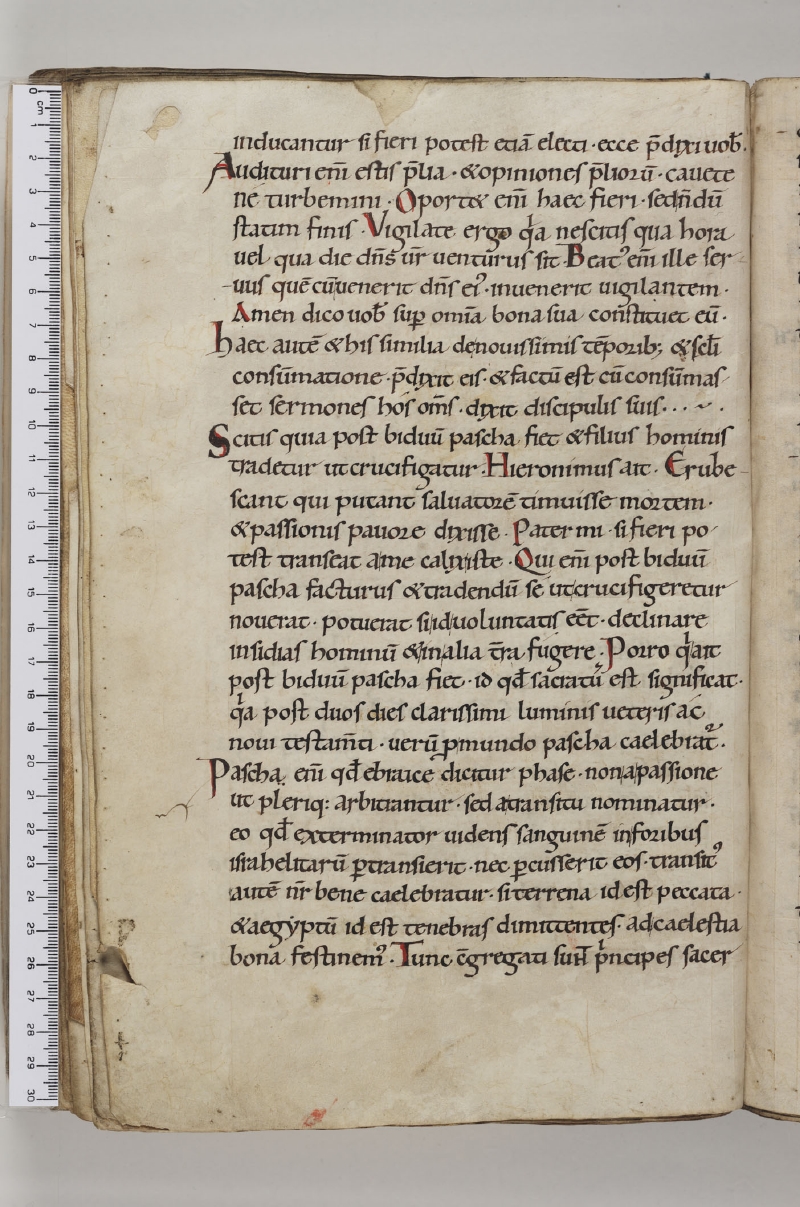 inducantur si fieri potest etiā electi · ecce p̄dixi uob̄.
Audituri eni̅ estis p̄lia · &opiniones p̄lioru̅ · cauete
ne turbemini · Oport& eni̅ haec fieri · sed n̄du̅
statim finis · Vigilate ergo qͥa nescitis qua hora
uel qua die dn̄s ur̄ uenturus sit · Beatꝰ eni̅ ille ser
uus que̅ cu̅ uenerit dn̄s eiꝰ · inuenerit uigilantem ·
Amen dico uob̄ sup̄ omīa bona sua constituet eu̅ ·
haec aute̅ & his similia de nouissimis te̅porib; & sc̄li
consu̅matione · p̄dixit eis · & factu̅ est cu̅ consu̅mas
set sermones hos om̄s · dixit discipulis suis · · · ~ ·
Scitis quia post biduu̅ pascha fiet & filius hominis
tradetur ut crucifigatur · Hieronimus ait · Erube
scant qui putant saluatore̅ timuisse mortem ·
& passionis pauore dixisse · Pater mi · si fieri po
test transeat a me calix iste · Qui eni̅ post biduu̅
pascha facturus & tradendu̅ se ut crucifigeretur
nouerat · potuerat si id uoluntatis ee̅t · declinare
insidias hominu̅ & in alia t̄ra fugere · Porro qͩ ait
post biduu̅ pascha fiet · id qd̄ sacratu̅ est significat ·
qͥa post duos dies clarissimi luminis ueteris ac
noui testam̄ti · ueru̅ p̱ mundo pascha caelebrat᷑ ·
Pascha eni̅ qd̄ ebraice dicitur phase · non a passione
ut pleriq: arbitrantur · sed a transitu nominatur ·
eo qd̄ exterminator uidens sanguine̅ in foribus
israhelitaru̅ ꝑtransierit · nec ꝑcusserit eos · transitꝰ
aute̅ nr̄ bene caelebratur · si terrena id est peccata ·
& aegyptu̅ id est tenebras dimittentes · ad caelestia
bona festinemꝰ · Tunc c̄gregati sunt pͥncipes sacer
0 cm 1 2 3 4 5 6 7 8 9 10 11 12 13 14 15 16 17 18 19 20 21 22 23 24 25 26 27 28 29 30